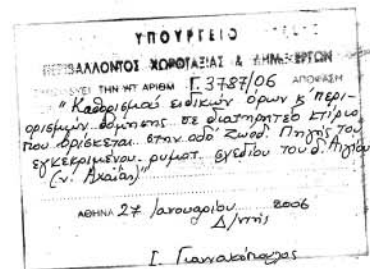 ΥΠΟΥΡΓΕΙΟ
ΠΕΡΙΒΑΛΛΟΝΤΟΣ ΧΩΡΟΤΑΞΙΑΣ & ΔΗΜ. ΕΡΓΩΝ
ΤΗΝ ΥΠ ΑΡΙΘΜ Γ. 3787/06 ΑΠΟΦΑΣΗ
"Καθορισμού ειδικών όρων κ' περι-
ορισμών δόμησης σε διατηρητέο κτίριο
που βρίσκεται στην οδό Ζωοδ. Πηγής του
εγκεκριμένου ρυμοτ. σχεδίου του δ. Αιγίου
(ν. Αχαΐας)"
ΑΘΗΝΑ 27 Ιανουαρίου 2006
Δ/ντής
Ι. Γιαννακόπουλος